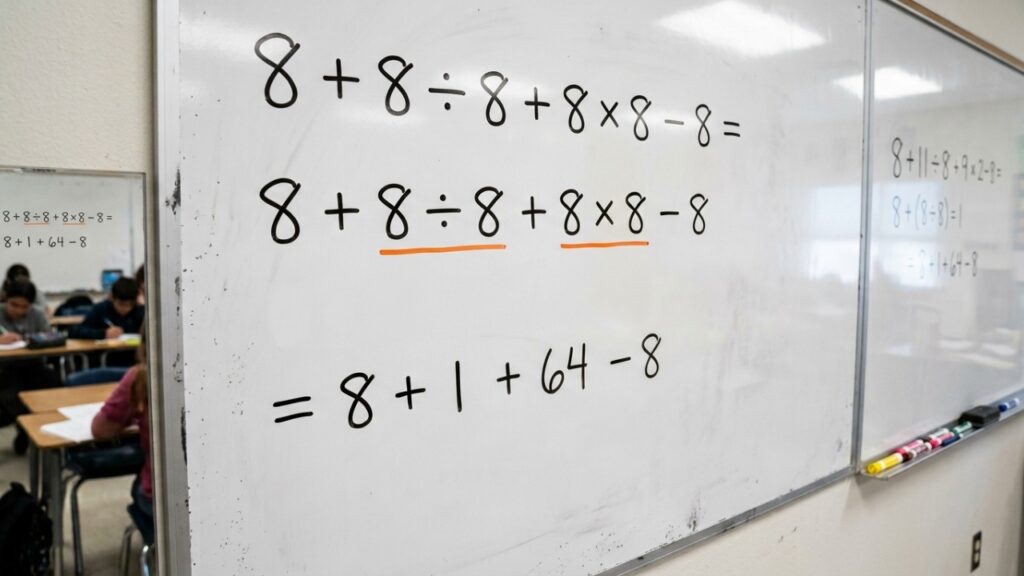 8 + 8 ÷ 8 + 8 × 8 - 8 =
8 + 8 ÷ 8 + 8 × 8 - 8
= 8 + 1 + 64 - 8
8+8÷8+8×8-8=
8+1+64-8
8+11÷8+9×2-8=
8+(8÷8)=1
=8+1+64-8